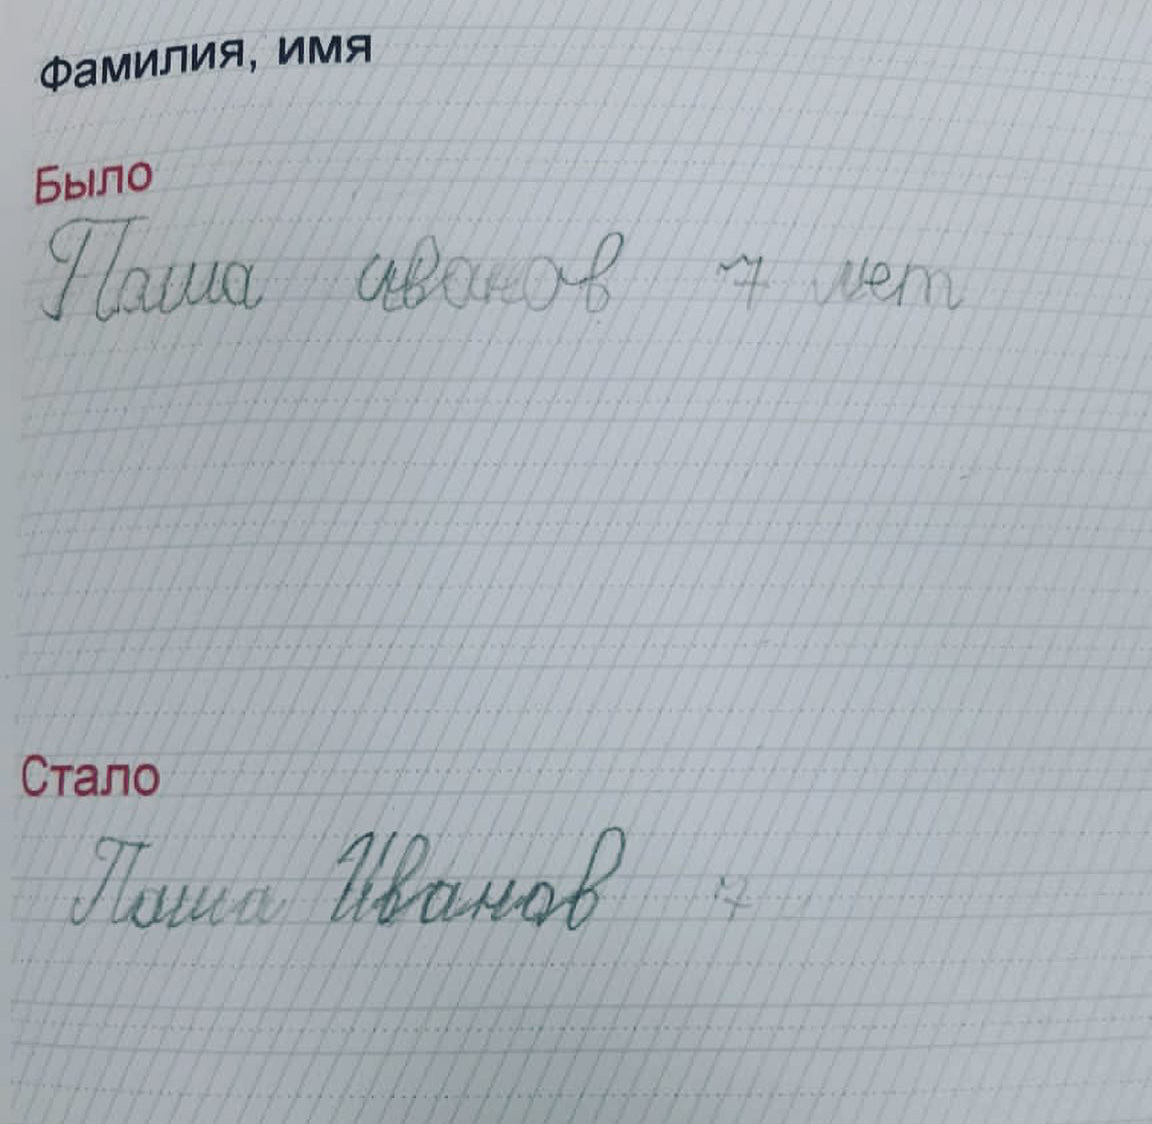 Фамилия, имя
Было
Паша иванов 7 лет
Стало
Паша Иванов 7